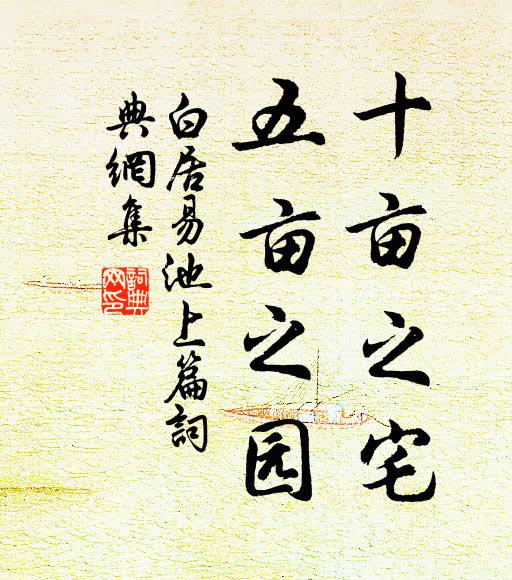 十亩之宅
五亩之园
白居易池上篇詞
典網集
詞典
网印